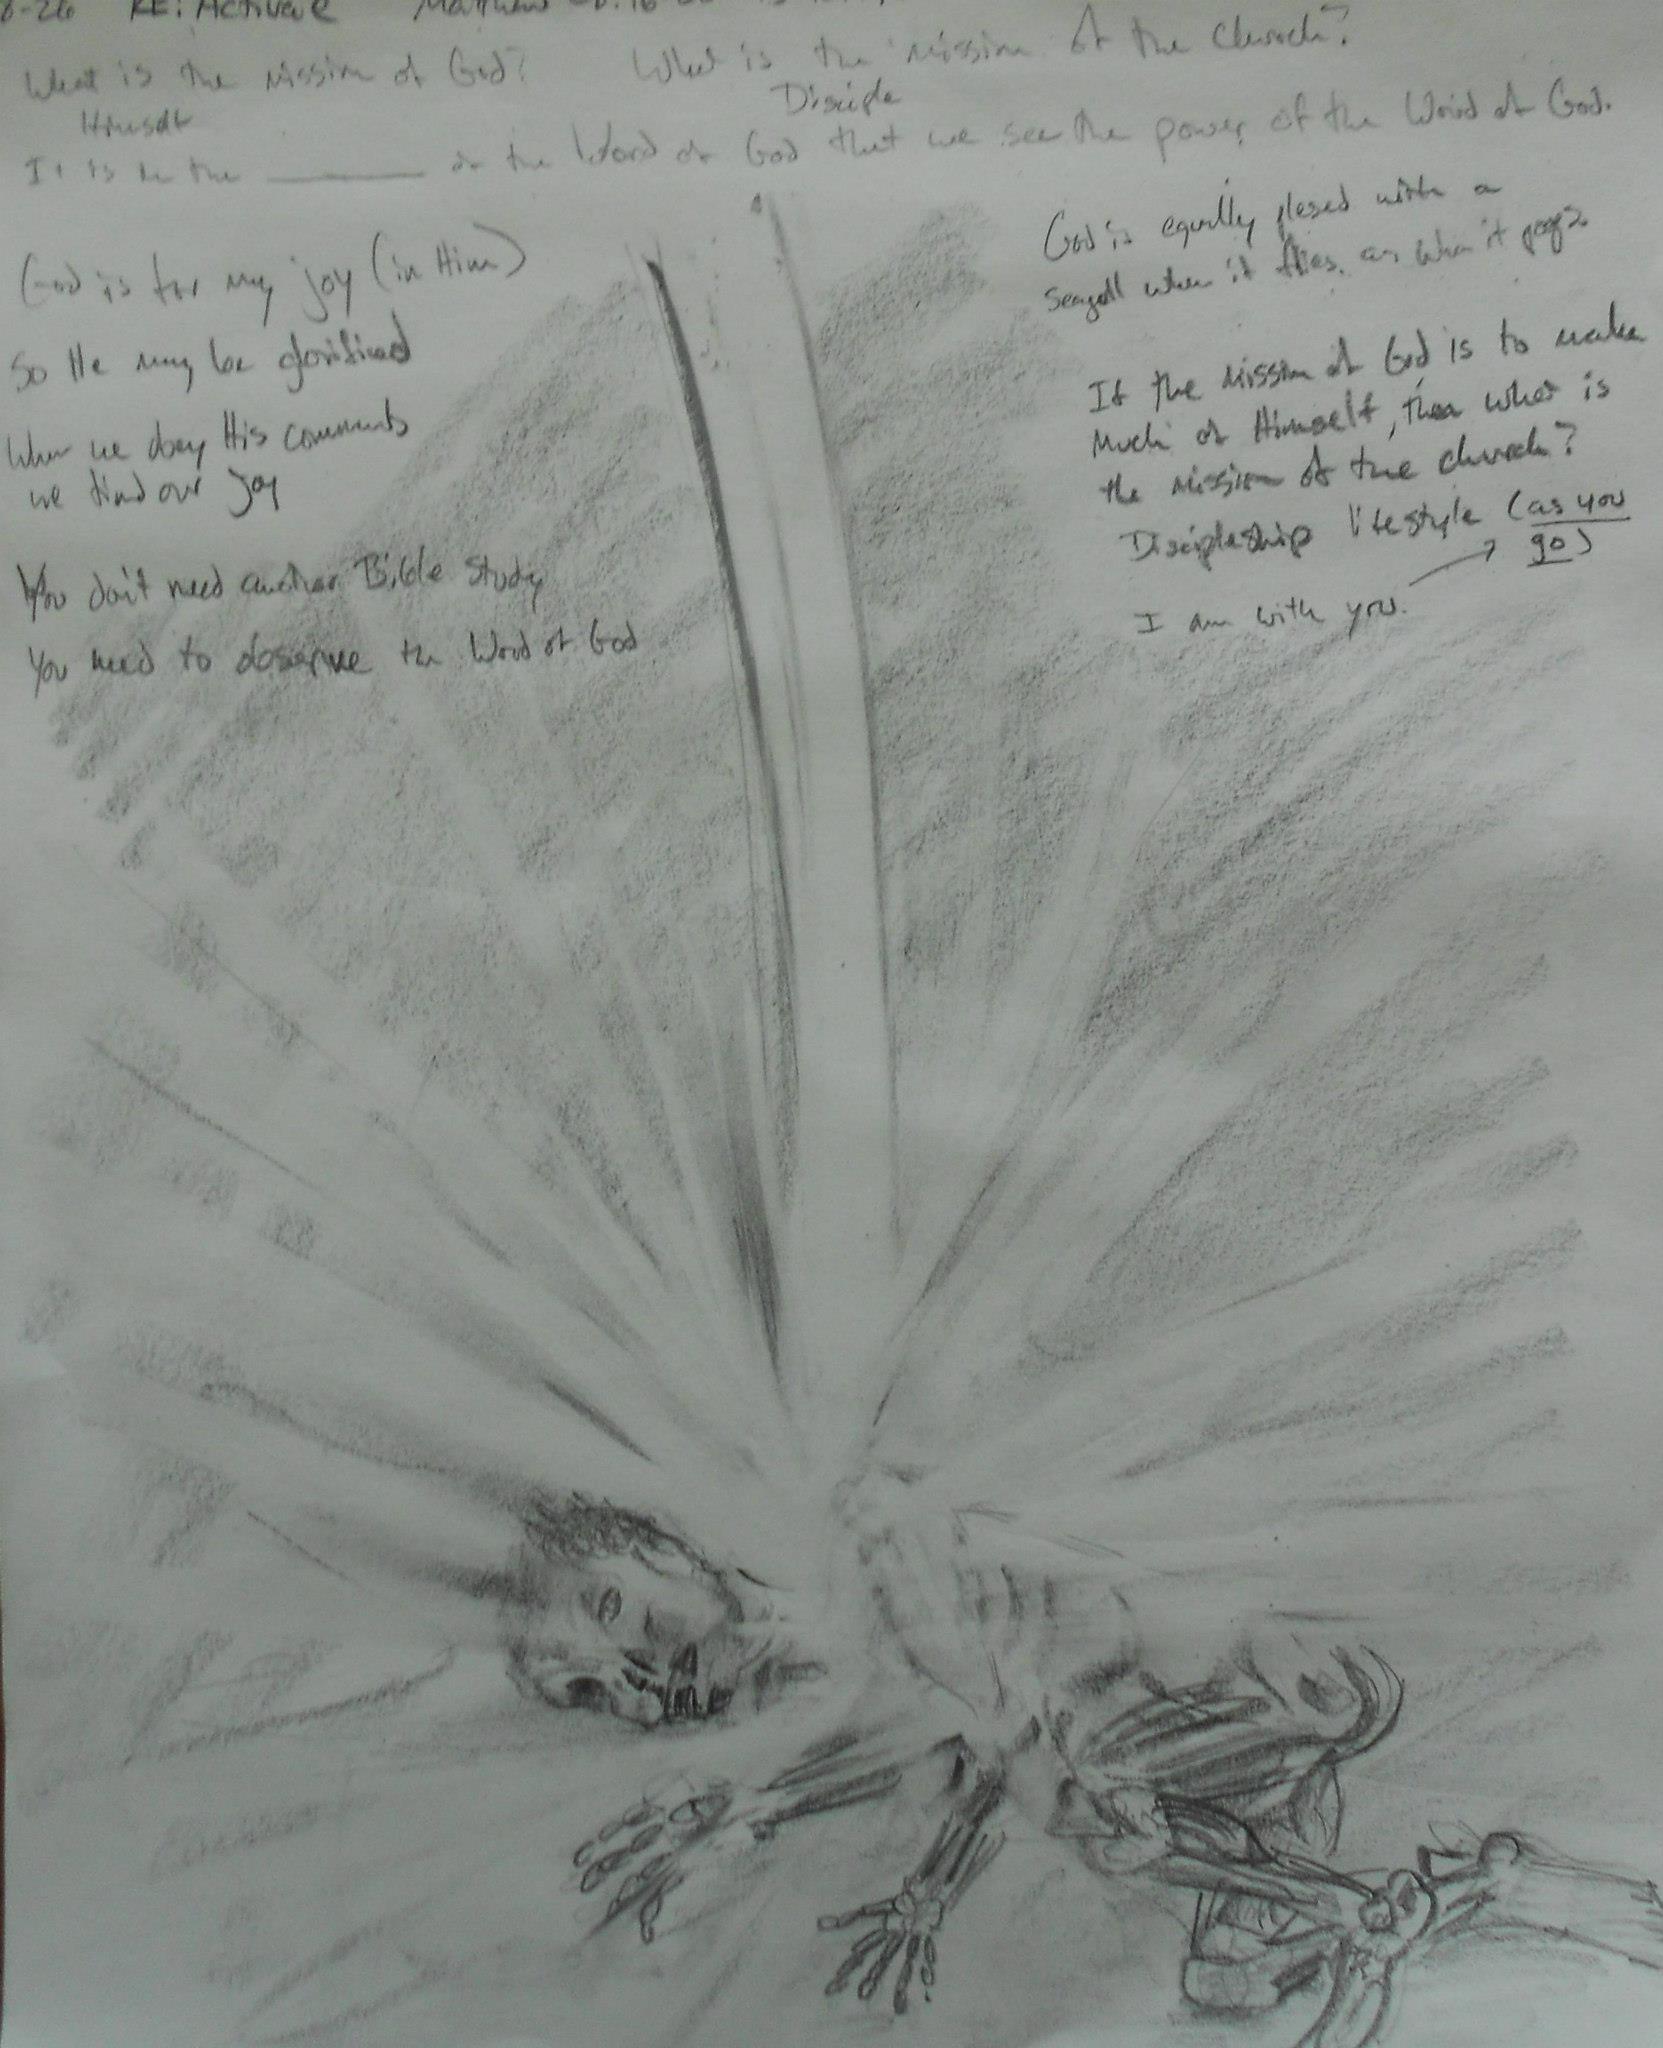 8-26 RE: Activate Matthew
What is the mission of God? What is the mission of the church?
Himself Disciple
It is in the ________ of the Word of God that we see the power of the Word of God.
God is for my joy (in Him)
So He may be glorified
When we obey His comments
we find our joy
You don't need another Bible Study
You need to observe the Word of God
God is equally plesed with a
seagull when it flies as when it poops
If the mission of God is to make
Much of Himself, then what is
the mission of the church?
Discipleship lifestyle (as you
go)
I am with you.